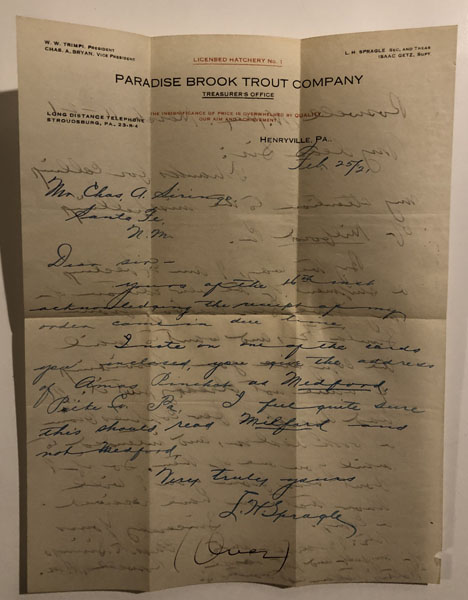 W. W. TRIMPI, PRESIDENT
CHAS. A. BRYAN, VICE PRESIDENT
L. H. SPRAGLE, SEC. AND TREAS
ISAAC GETZ, SUPT
LICENSED HATCHERY NO. 1
PARADISE BROOK TROUT COMPANY
TREASURER'S OFFICE
LONG DISTANCE TELEPHONE
STROUDSBURG, PA., 23-R-4
THE INSIGNIFICANCE OF PRICE IS OVERWHELMED BY QUALITY
OUR AIM AND ACHIEVEMENT
HENRYVILLE, PA.
Feb. 25/21
Mr. Chas. A. Siringo,
Santa Fe,
N.M.
Dear sir-
yours of the 16th inst
acknowledging the receipt of my
order came in due time.
I note on one of the cards
you inclosed, you give the address
of Amos Pinchot as Medford,
Pike Co. Pa. I feel quite sure
this should read Milford and
not Medford,
Very truly yours
L. H. Spragle
(Over)